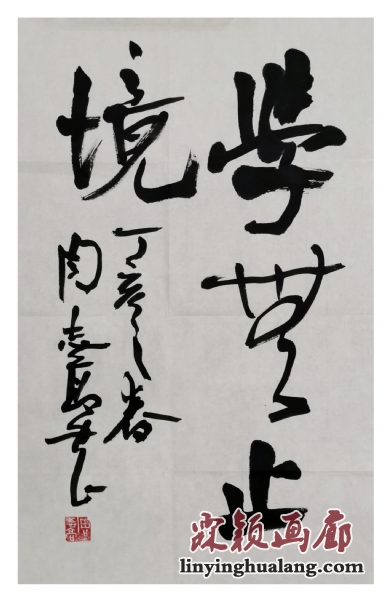 學無止
境
丁亥之春
周
霖颖画廊
linyinghualang.com